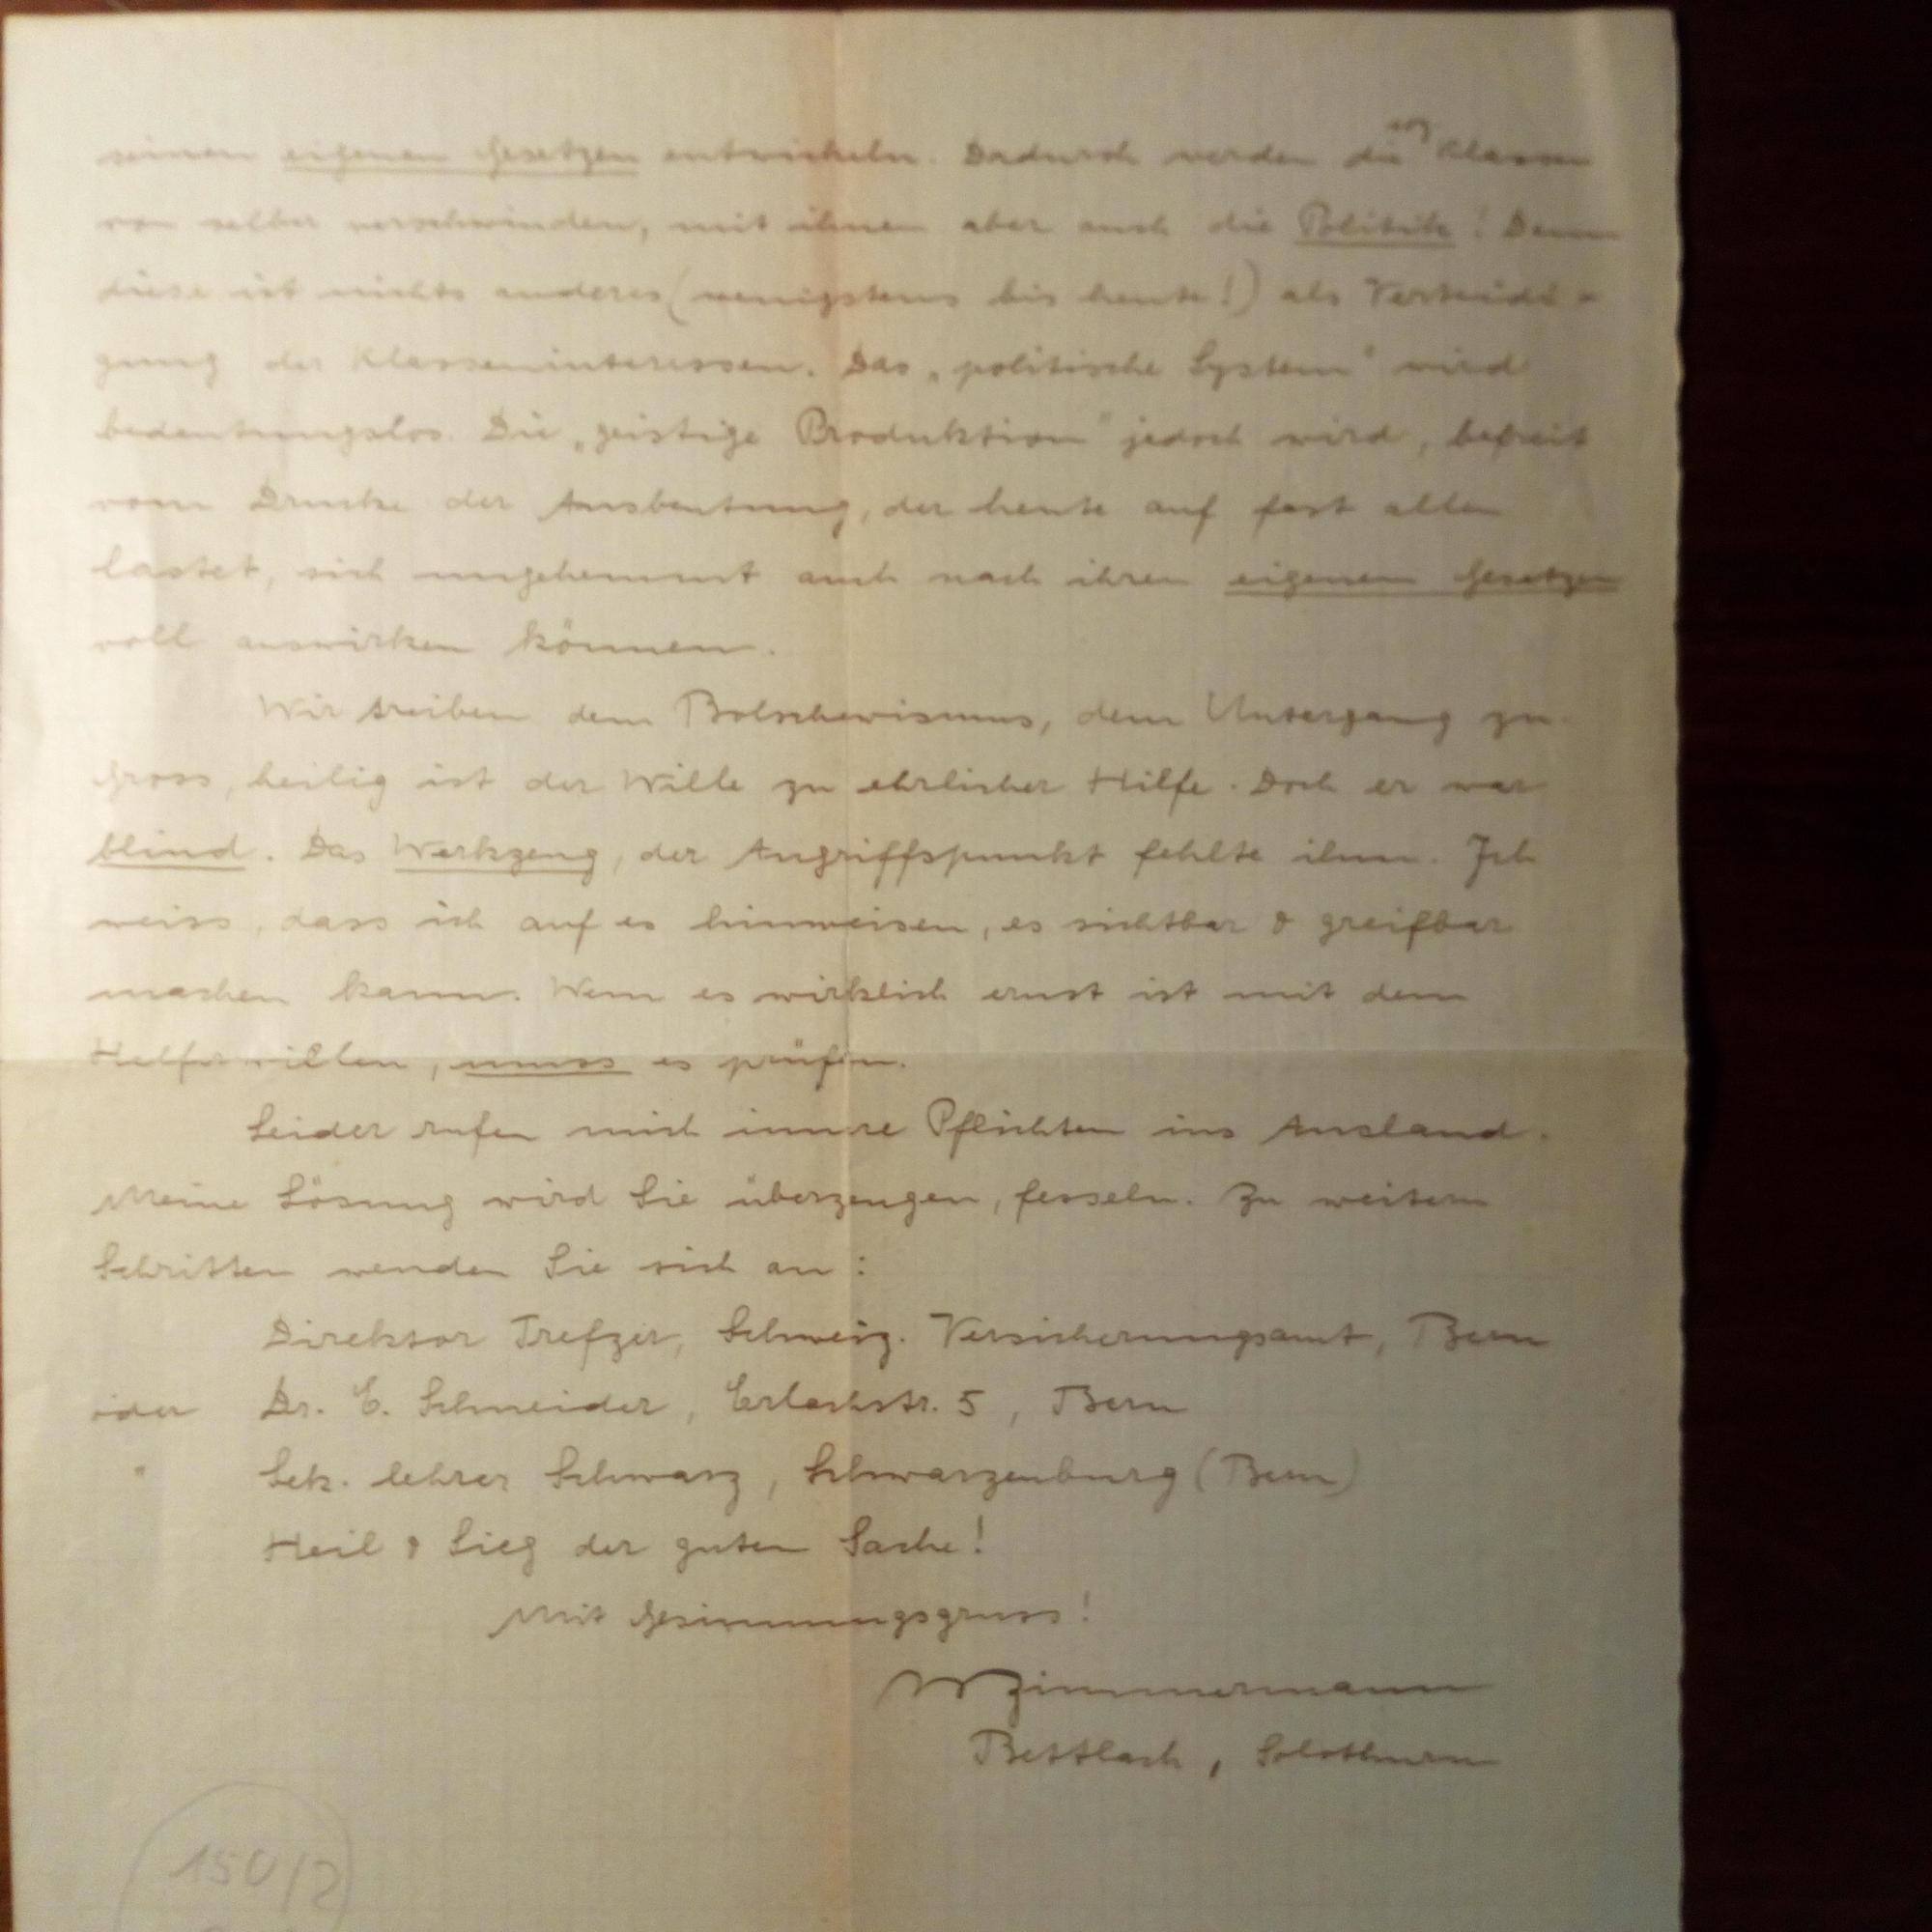 seinen eigenen Gesetzen entwickeln. Dadurch werden die sog. Klassen
von selber verschwinden, mit ihnen aber auch die Politik! Denn
diese ist nichts anderes (wenigstens bis heute!) als Verteidi-
gung der Klasseninteressen. Das „politische System" wird
bedeutungslos. Die „geistige Produktion" jedoch wird, befreit
vom Drucke der Ausbeutung, der heute auf fast allen
lastet, sich ungehemmt auch nach ihren eigenen Gesetzen
voll auswirken können.
Wir treiben dem Bolschewismus, dem Untergang zu.
Gross, heilig ist der Wille zu ehrlicher Hilfe. Doch er war
blind. Das Werkzeug, der Angriffspunkt fehlte ihm. Ich
weiss, dass ich auf es hinweisen, es sichtbar & greifbar
machen kann. Wem es wirklich ernst ist mit dem
Helferwillen, muss es prüfen.
Leider rufen mich innere Pflichten ins Ausland.
Meine Lösung wird Sie überzeugen, fesseln. Zu weitern
Schritten wenden Sie sich an:
Direktor Trefzer, Schweiz. Versicherungsamt, Bern
oder Dr. E. Schneider, Erlachstr. 5, Bern
" Sek. lehrer Schwarz, Schwarzenburg (Bern)
Heil & Sieg der guten Sache!
Mit Gesinnungsgruss!
W Zimmermann
Bettlach, Solothurn
150/2